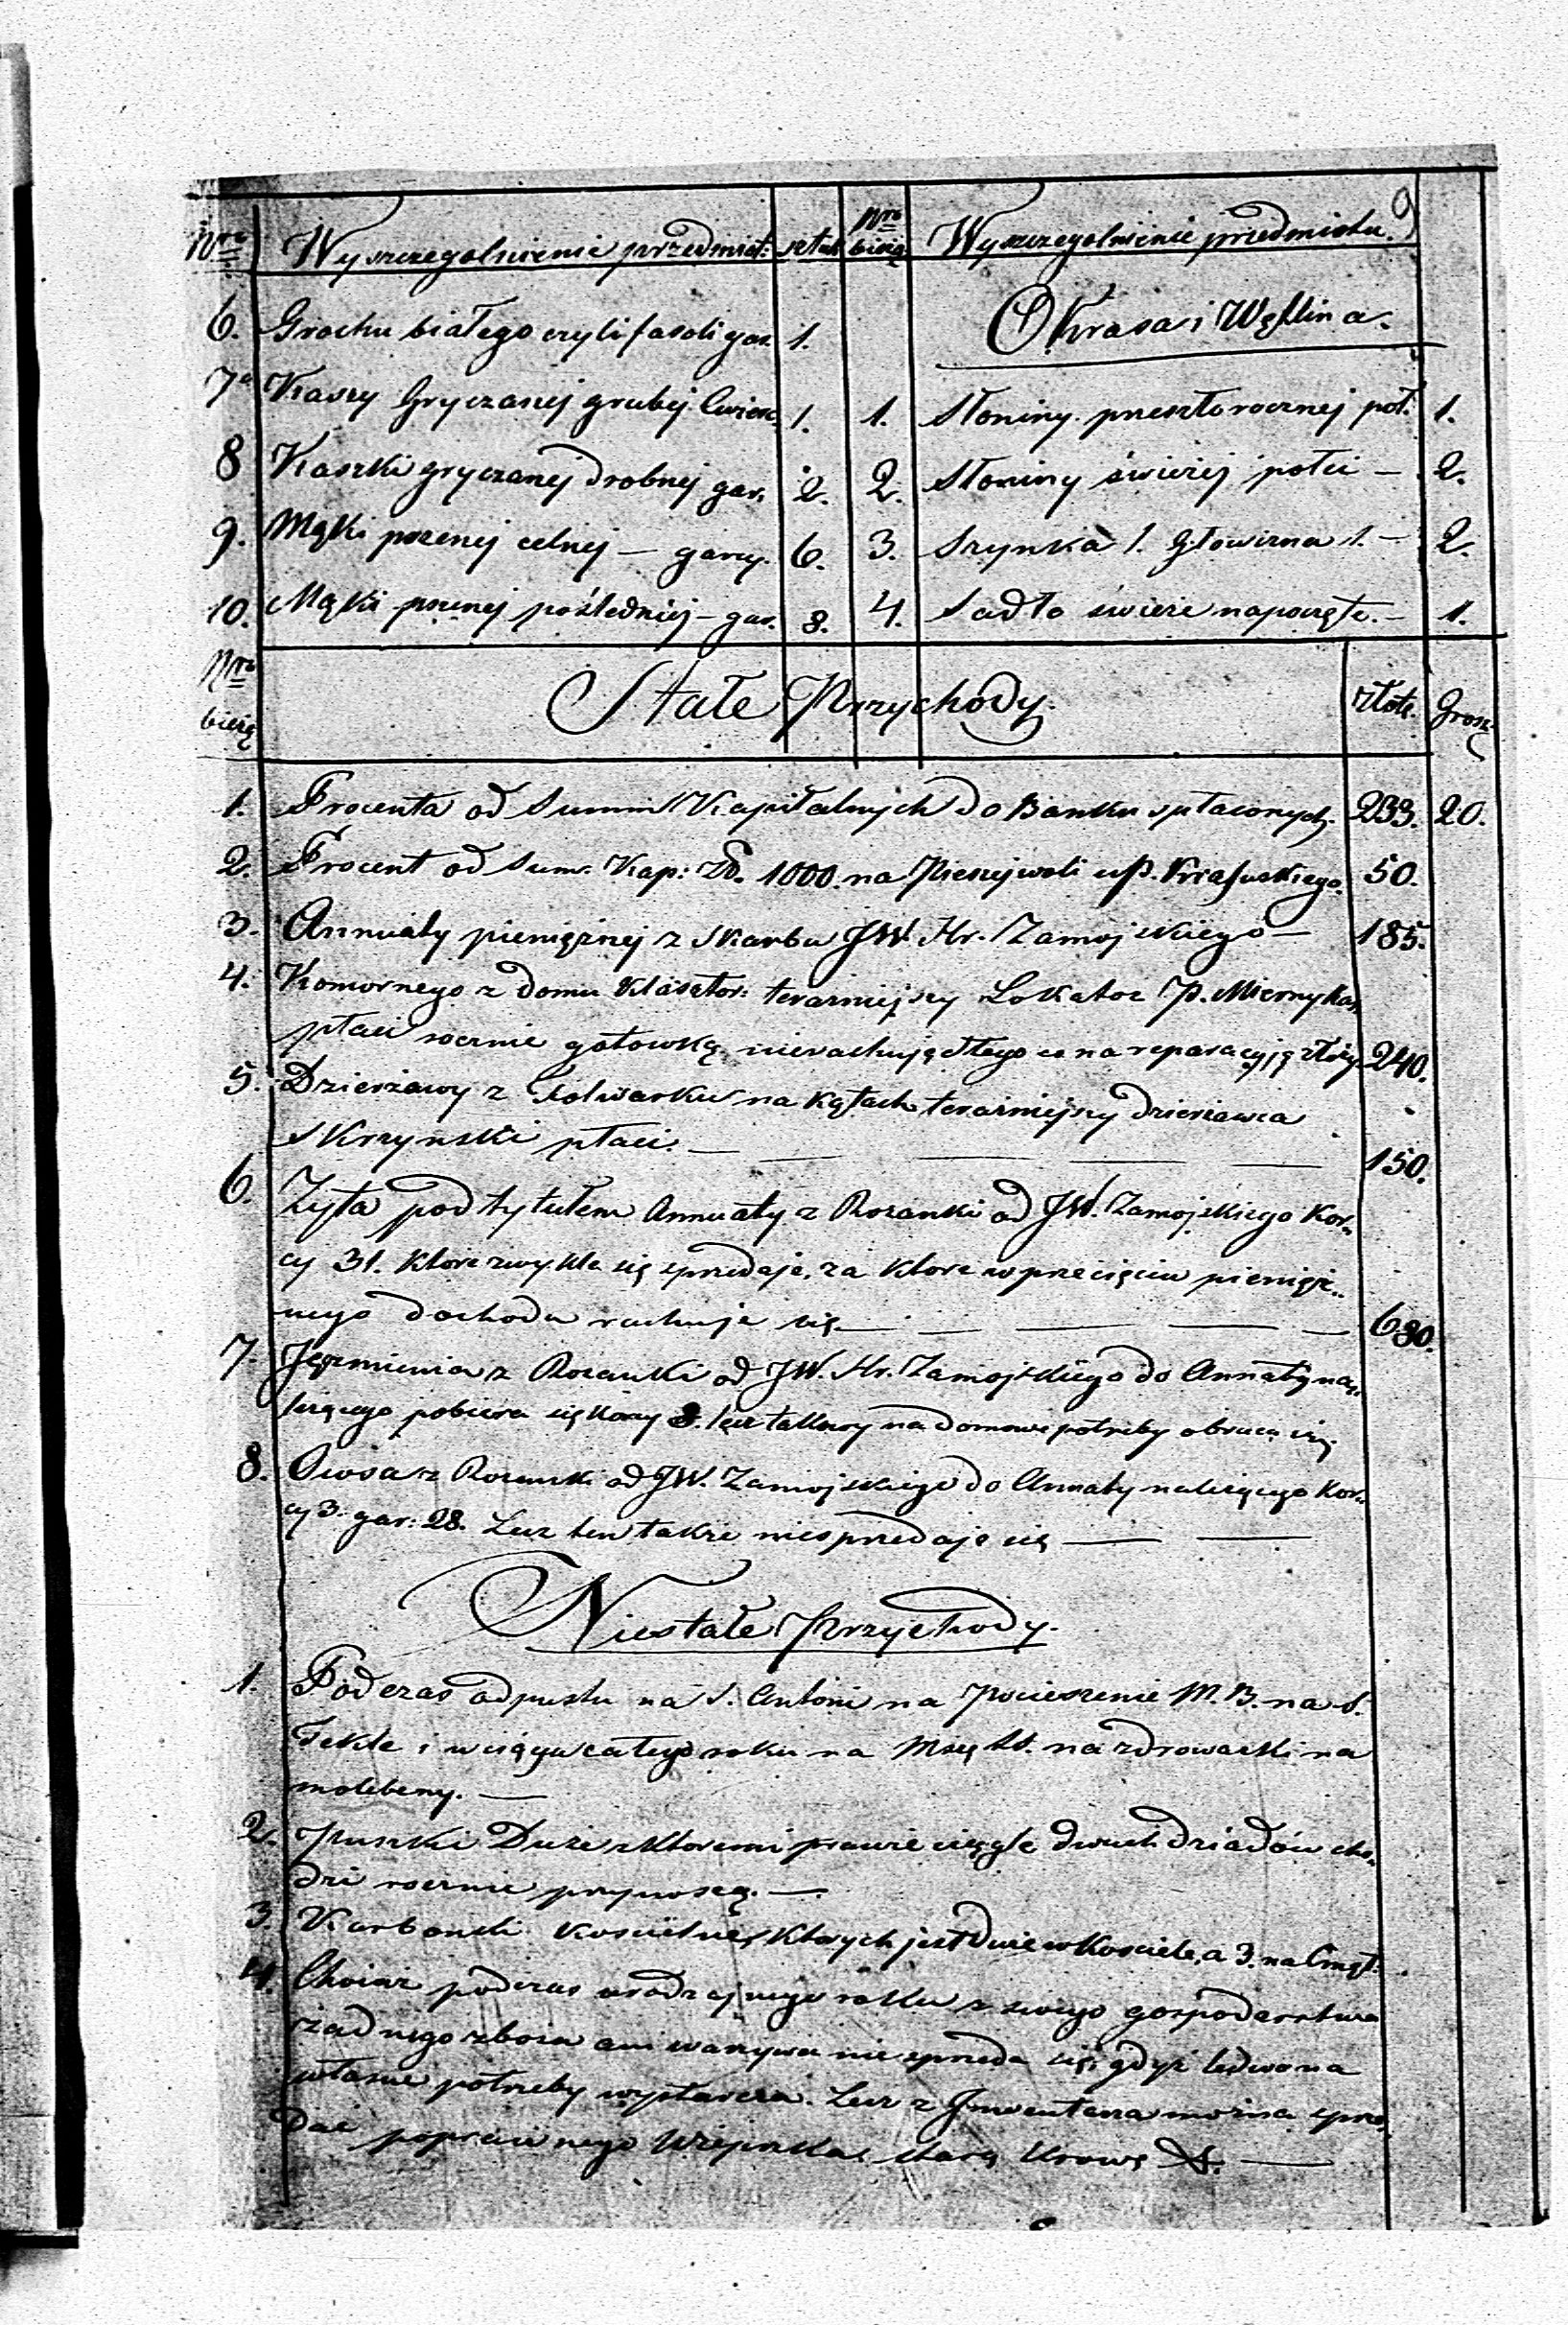 9
Nro Wyszczegolnienie przedmiot: sztuk Nro bieżą Wyszczegolnienie przedmiotu.
6. Grochu białego czyli fasoli gar. 1. Okrasa i Wędlina.
7. Kaszy Gryczanej grubej Cwierc. 1. 1. Słoniny przeszłorocznej poł. 1.
8 Kaszki gryczanej drobnej gar. 2. 2. Słoniny świeżej połci — 2.
9. Mąki pszenej celnej — garcy. 6. 3. Szynka 1. Głowizna 1. — 2.
10. Mąki pszenej pośledniej — gar. 8. 4. Sadło świeże napoczęte. — 1.
Nro bieżą Stałe Przychody. złote. Grosz
1. Procenta od Summ Kapitalnych do Banku spłaconych. 233. 20.
2. Procent od Sum. Kap: Zł. 1000. na uP. 50.
3. Annuaty pieniężnej z Skarbu JW. Hr. Zamojskiego — 185.
4. Komornego z domu Klasztor: teraźniejszy Lokator P. Miernyka
płaci rocznie gotowką nierachując tego co na reparacyją złoży 240.
5. Dzierżawy z Folwarku na Kątach teraźniejszy dzierżawca
Skrzynski płaci. — 150.
6. Zyta pod tytułem Annuaty z Rozanki od JW. Zamojskiego Kor-
cy 31. Ktore zwykle się sprzedaje, za ktore w przecięciu pienięż-
nego dochodu rachuje się — 630.
7. Jęczmienia z Rozanki od JW. Hr. Zamojskiego do Annaty nale-
żącego pobiera się Korcy 8. lecz takowy na domowe potrzeby obraca się.
8. Owsa z Rozanki od JW. Zamojskiego do Annaty należącego Kor-
cy 3. gar: 28. Lecz ten także niesprzedaje się —
Niestałe Przychody.
1. Podczas odpustu na S. Antoni na Pocieszenie M. B. na S.
Tekle i wciągu całego roku na Mszę SS. na zdrowaśki na
molebeny. —
2. Puszki Duże z ktoremi prawie ciągle dwuch dziadów cho-
dzi rocznie przynoszą. —
3. Karbonki Koscielne, ktorych jest dwie w Kosciele, a 3. na Cmęt:
4. Chociaż podczas urodzajnego roku z swego gospodarstwa
żadnego zboża ani warzywa nie sprzeda się, gdyż ledwo na
własne potrzeby wystarcza. Lecz z Jnwentarza można sprze-
dać poprawnego Wieprzka, starą krowę —